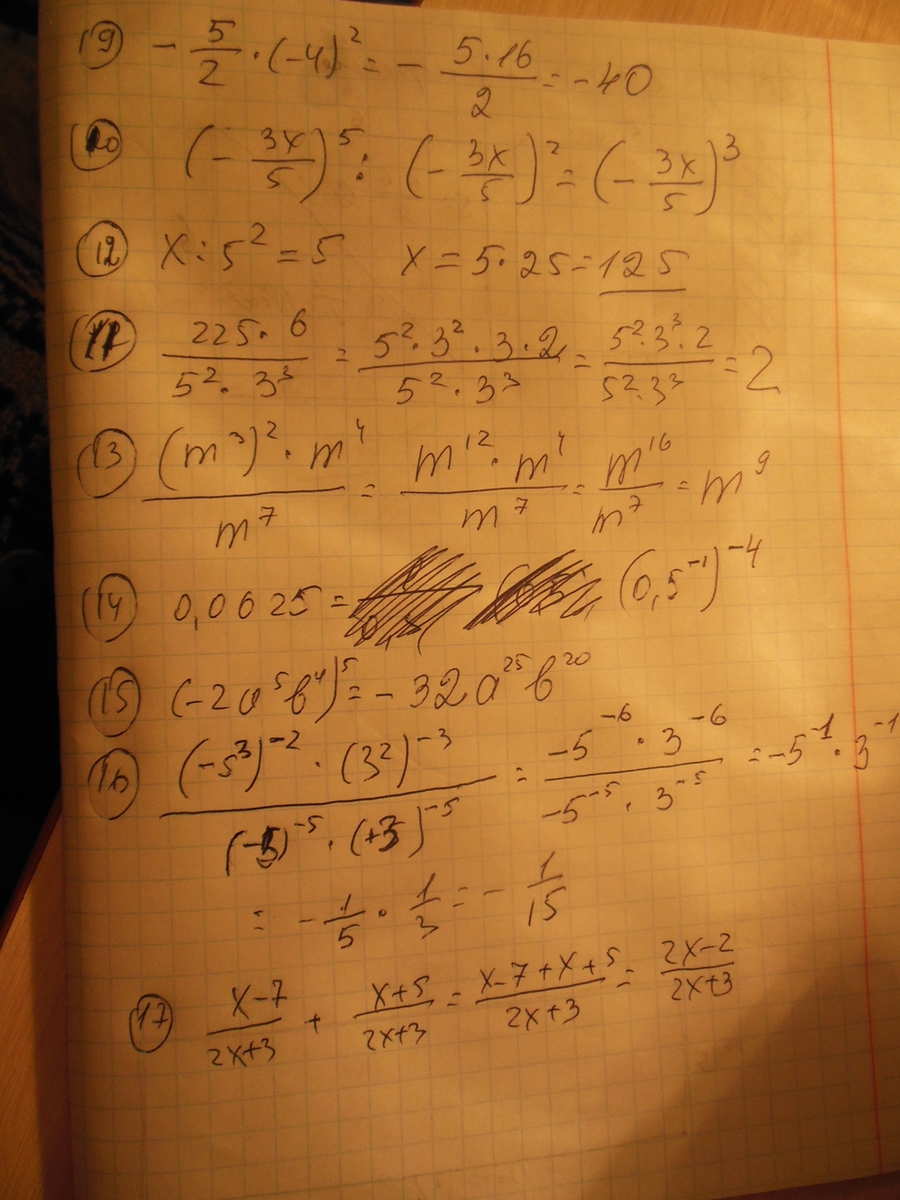 19) -5/2 · (-4)² = - 5·16/2 = -40
10) (- 3x/5)⁵ : (- 3x/5)² = (- 3x/5)³
12) x : 5² = 5 x = 5·25 = 125
11) 225·6/5²·3³ = 5²·3²·3·2/5²·3³ = 5²·3³·2/5²·3³ = 2
13) (m³)²·m⁴/m⁷ = m¹²·m⁴/m⁷ = m¹⁶/m⁷ = m⁹
14) 0,0625 = (0,5⁻¹)⁻⁴
15) (-2a⁵b⁴)⁵ = -32a²⁵b²⁰
16) (-5³)⁻² · (3²)⁻³/(-5)⁻⁵ · (+3)⁻⁵ = -5⁻⁶ · 3⁻⁶/-5⁻⁵ · 3⁻⁵ = -5⁻¹ · 3⁻¹
= - 1/5 · 1/3 = - 1/15
17) x-7/2x+3 + x+5/2x+3 = x-7+x+5/2x+3 = 2x-2/2x+3